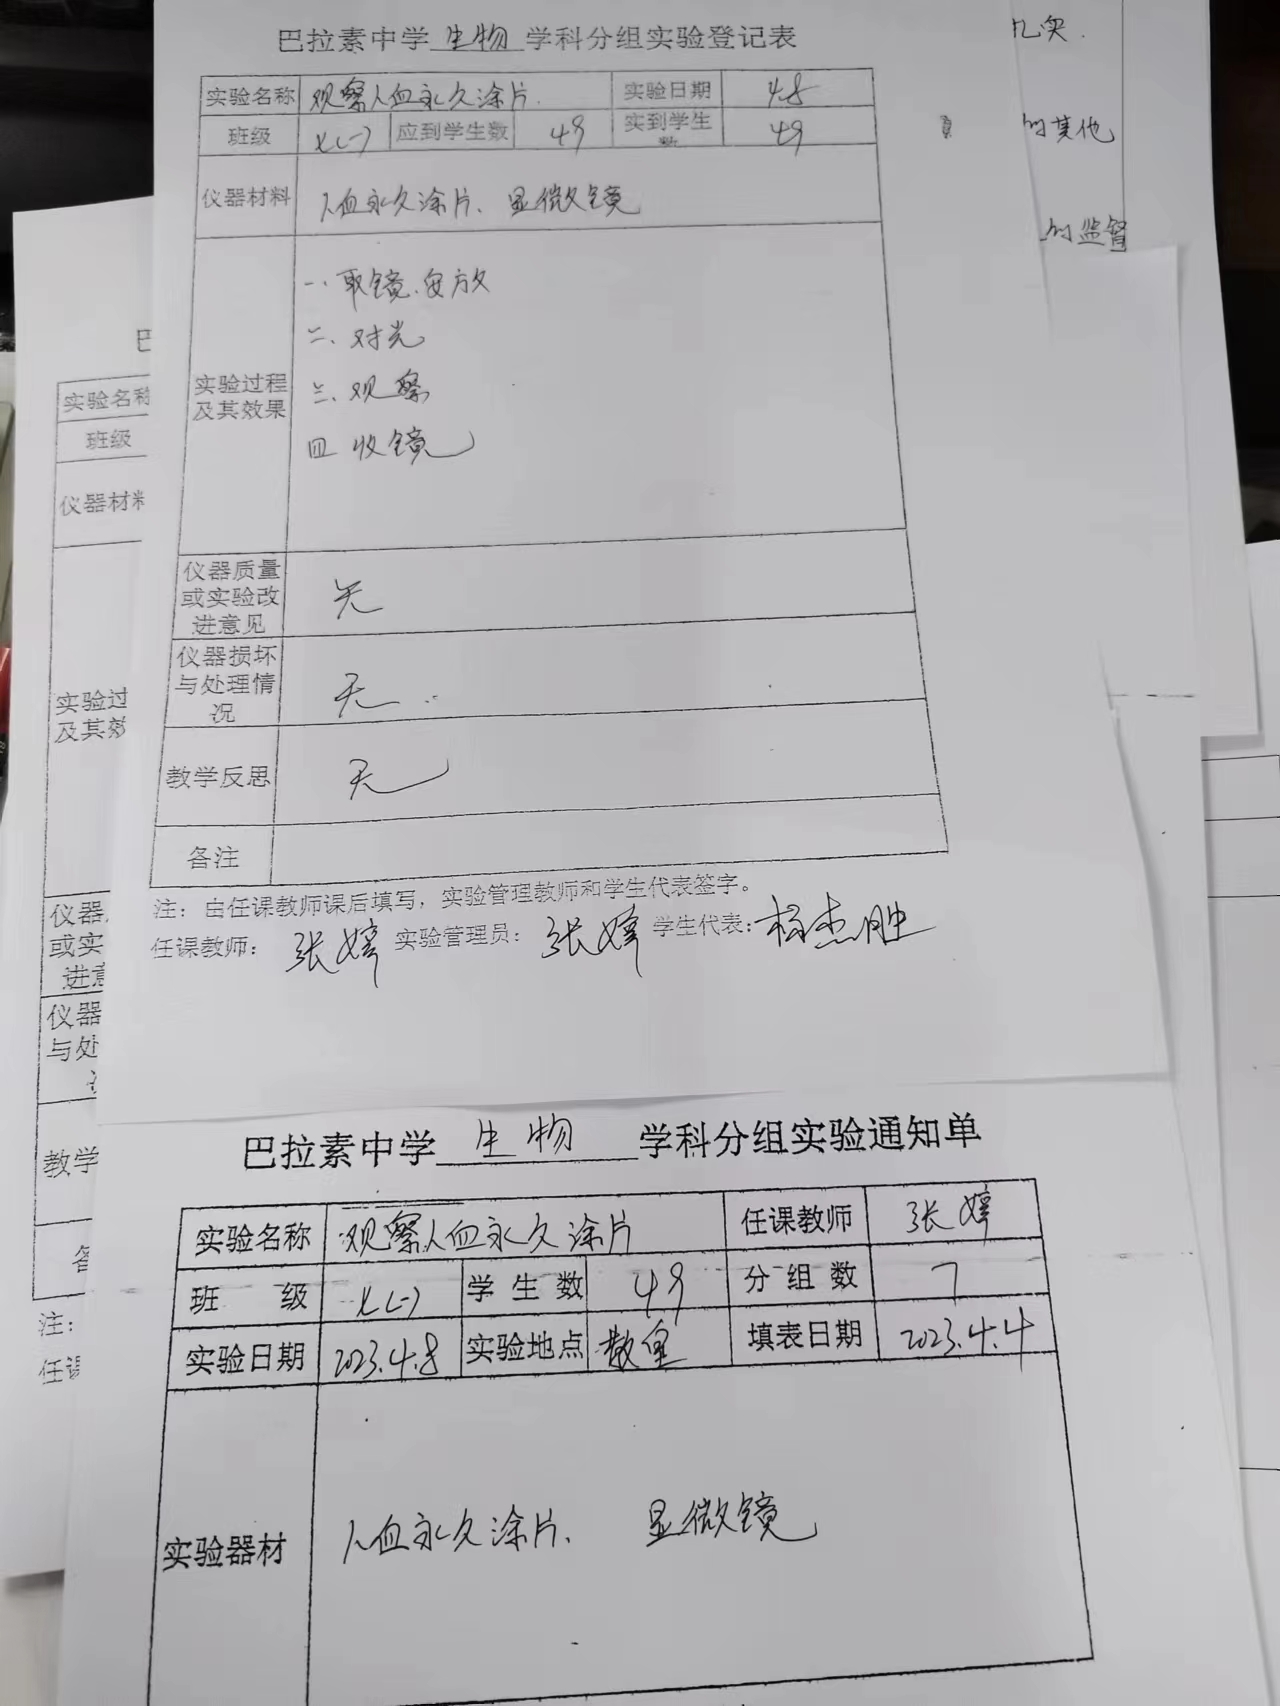 巴拉素中学 生物 学科分组实验登记表
实验名称 观察人血永久涂片 实验日期 4.8
班级 七(一) 应到学生数 49 实到学生数 49
仪器材料 人血永久涂片、显微镜
实验过程及其效果
一、取镜、安放
二、对光
三、观察
四 收镜
仪器质量或实验改进意见 无
仪器损坏与处理情况 无
教学反思 无
备注
注：由任课教师课后填写，实验管理教师和学生代表签字。
任课教师： 张婷 实验管理员： 张婷 学生代表：杨杰胜
巴拉素中学 生物 学科分组实验通知单
实验名称 观察人血永久涂片 任课教师 张婷
班 级 七(一) 学生数 49 分组数 7
实验日期 2023.4.8 实验地点 教室 填表日期 2023.4.4
实验器材 人血永久涂片、 显微镜
巴
实验名称
班级
仪器材料
实验过
及其效
仪器
或实
进意
仪器
与处
教学
注：
任课
扎实.
的其他
的监督